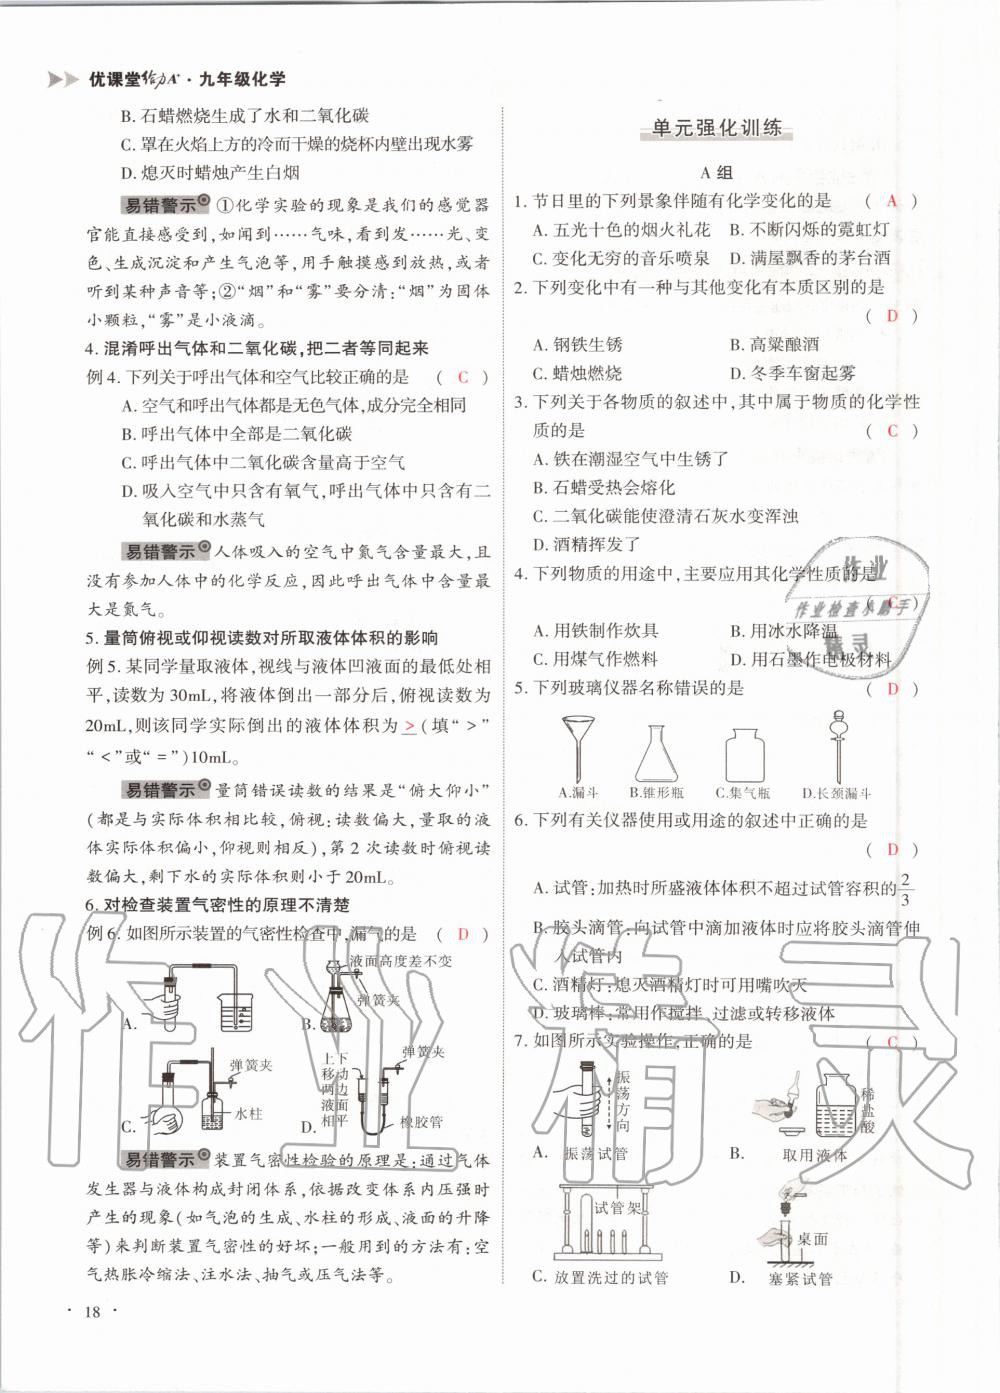 优课堂给力A+·九年级化学
B. 石蜡燃烧生成了水和二氧化碳
C. 罩在火焰上方的冷而干燥的烧杯内壁出现水雾
D. 熄灭时蜡烛产生白烟
易错警示 ①化学实验的现象是我们的感觉器
官能直接感受到,如闻到……气味,看到发……光、变
色、生成沉淀和产生气泡等,用手触摸感到放热,或者
听到某种声音等;②“烟”和“雾”要分清:“烟”为固体
小颗粒,“雾”是小液滴。
4. 混淆呼出气体和二氧化碳,把二者等同起来
例 4. 下列关于呼出气体和空气比较正确的是 ( C )
A. 空气和呼出气体都是无色气体,成分完全相同
B. 呼出气体中全部是二氧化碳
C. 呼出气体中二氧化碳含量高于空气
D. 吸入空气中只含有氧气,呼出气体中只含有二
氧化碳和水蒸气
易错警示 人体吸入的空气中氮气含量最大,且
没有参加人体中的化学反应,因此呼出气体中含量最
大是氮气。
5. 量筒俯视或仰视读数对所取液体体积的影响
例 5. 某同学量取液体,视线与液体凹液面的最低处相
平,读数为 30mL,将液体倒出一部分后,俯视读数为
20mL,则该同学实际倒出的液体体积为 > (填“ > ”
“ < ”或“ = ”)10mL。
易错警示 量筒错误读数的结果是“俯大仰小”
(都是与实际体积相比较,俯视:读数偏大,量取的液
体实际体积偏小,仰视则相反),第 2 次读数时俯视读
数偏大,剩下水的实际体积则小于 20mL。
6. 对检查装置气密性的原理不清楚
例 6. 如图所示装置的气密性检查中,漏气的是 ( D )
液面高度差不变
弹簧夹
A.
B.
弹簧夹
水柱
C.
上下
移动
两边
液面
相平
弹簧夹
橡胶管
D.
易错警示 装置气密性检验的原理是:通过气体
发生器与液体构成封闭体系,依据改变体系内压强时
产生的现象(如气泡的生成、水柱的形成、液面的升降
等)来判断装置气密性的好坏;一般用到的方法有:空
气热胀冷缩法、注水法、抽气或压气法等。
· 18 ·
单元强化训练
A 组
1. 节日里的下列景象伴随有化学变化的是 ( A )
A. 五光十色的烟火礼花 B. 不断闪烁的霓虹灯
C. 变化无穷的音乐喷泉 D. 满屋飘香的茅台酒
2. 下列变化中有一种与其他变化有本质区别的是
( D )
A. 钢铁生锈 B. 高粱酿酒
C. 蜡烛燃烧 D. 冬季车窗起雾
3. 下列关于各物质的叙述中,其中属于物质的化学性
质的是 ( C )
A. 铁在潮湿空气中生锈了
B. 石蜡受热会熔化
C. 二氧化碳能使澄清石灰水变浑浊
D. 酒精挥发了
4. 下列物质的用途中,主要应用其化学性质的是
( C )
A. 用铁制作炊具 B. 用冰水降温
C. 用煤气作燃料 D. 用石墨作电极材料
作业
作业检查小助手
精灵
5. 下列玻璃仪器名称错误的是 ( D )
A.漏斗 B.锥形瓶 C.集气瓶 D.长颈漏斗
6. 下列有关仪器使用或用途的叙述中正确的是
( D )
A. 试管:加热时所盛液体体积不超过试管容积的2/3
B. 胶头滴管:向试管中滴加液体时应将胶头滴管伸
入试管内
C. 酒精灯:熄灭酒精灯时可用嘴吹灭
D. 玻璃棒:常用作搅拌、过滤或转移液体
7. 如图所示实验操作,正确的是 ( C )
振
荡
方
向
A. 振荡试管
稀
盐
酸
B. 取用液体
试管架
C. 放置洗过的试管
桌面
D. 塞紧试管
作业精灵